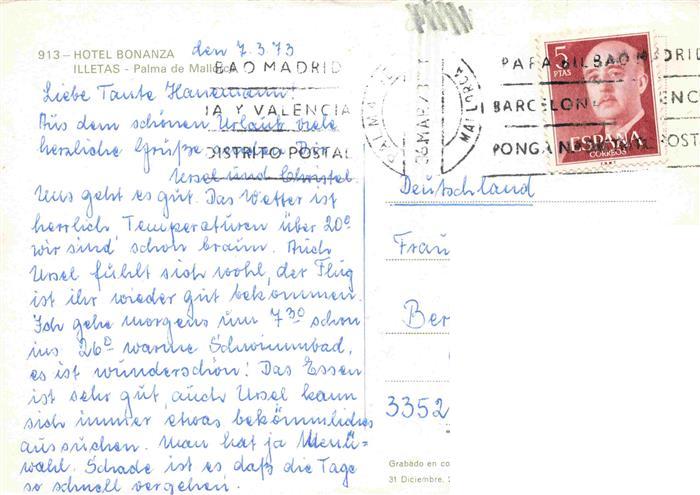 913 – HOTEL BONANZA
ILLETAS - Palma de Mallorca
den 7.3.73
Liebe Tante Hannemann!
Aus dem schönen Urlaub viele
herzliche Grüße senden Dir
Ursel und Christel
Uns geht es gut. Das Wetter ist
herrlich, Temperaturen über 20°
wir sind schon braun. Auch
Ursel fühlt sich wohl, der Flug
ist ihr wieder gut bekommen.
Ich gehe morgens um 7 30 schon
ins 26° warme Schwimmbad,
es ist wunderschön! Das Essen
ist sehr gut, auch Ursel kann
sich immer etwas bekömmliches
aussuchen. Man hat ja Menü=
wahl. Schade ist es daß die Tage
so schnell vergehen.
BAO MADRID
IA Y VALENCIA
DISTRITO POSTAL
PALMA
MALLORCA
MAR
73
PARA BILBAO MADRID
BARCELON ENCI
PONGA POST
5
PTAS
ESPAÑA
CORREOS
Deutschland
Frau
Ber
3352
Grabado en co
31 Diciembre,